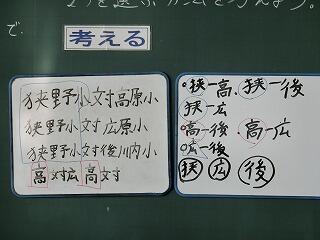 で、
考える
狭野小対高原小
狭野小対広原小
狭野小対後川内小
高対広 高対
•狭ー高.狭ー後
狭ー広
•高ー後.高ー広
○広ー後
狭 広 後